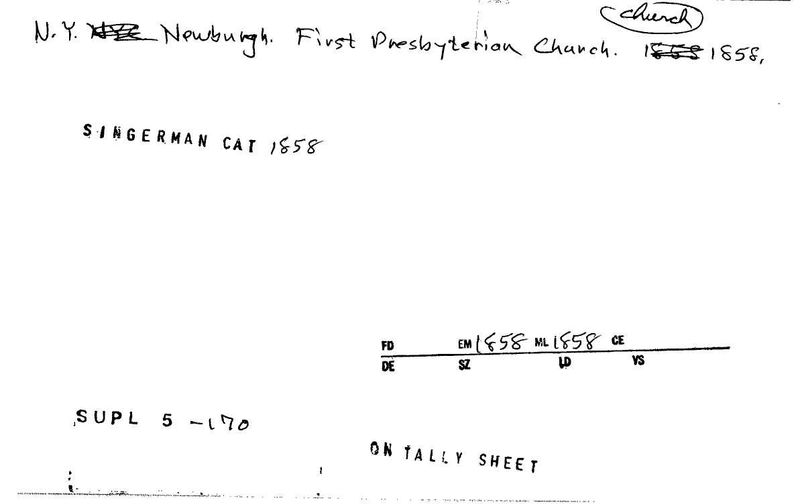 church
N.Y. Newburgh. First Presbyterian Church. 1858.
SINGERMAN CAT 1858
FD EM 1858 ML 1858 CE
DE SZ LD VS
SUPL 5 -170
ON TALLY SHEET